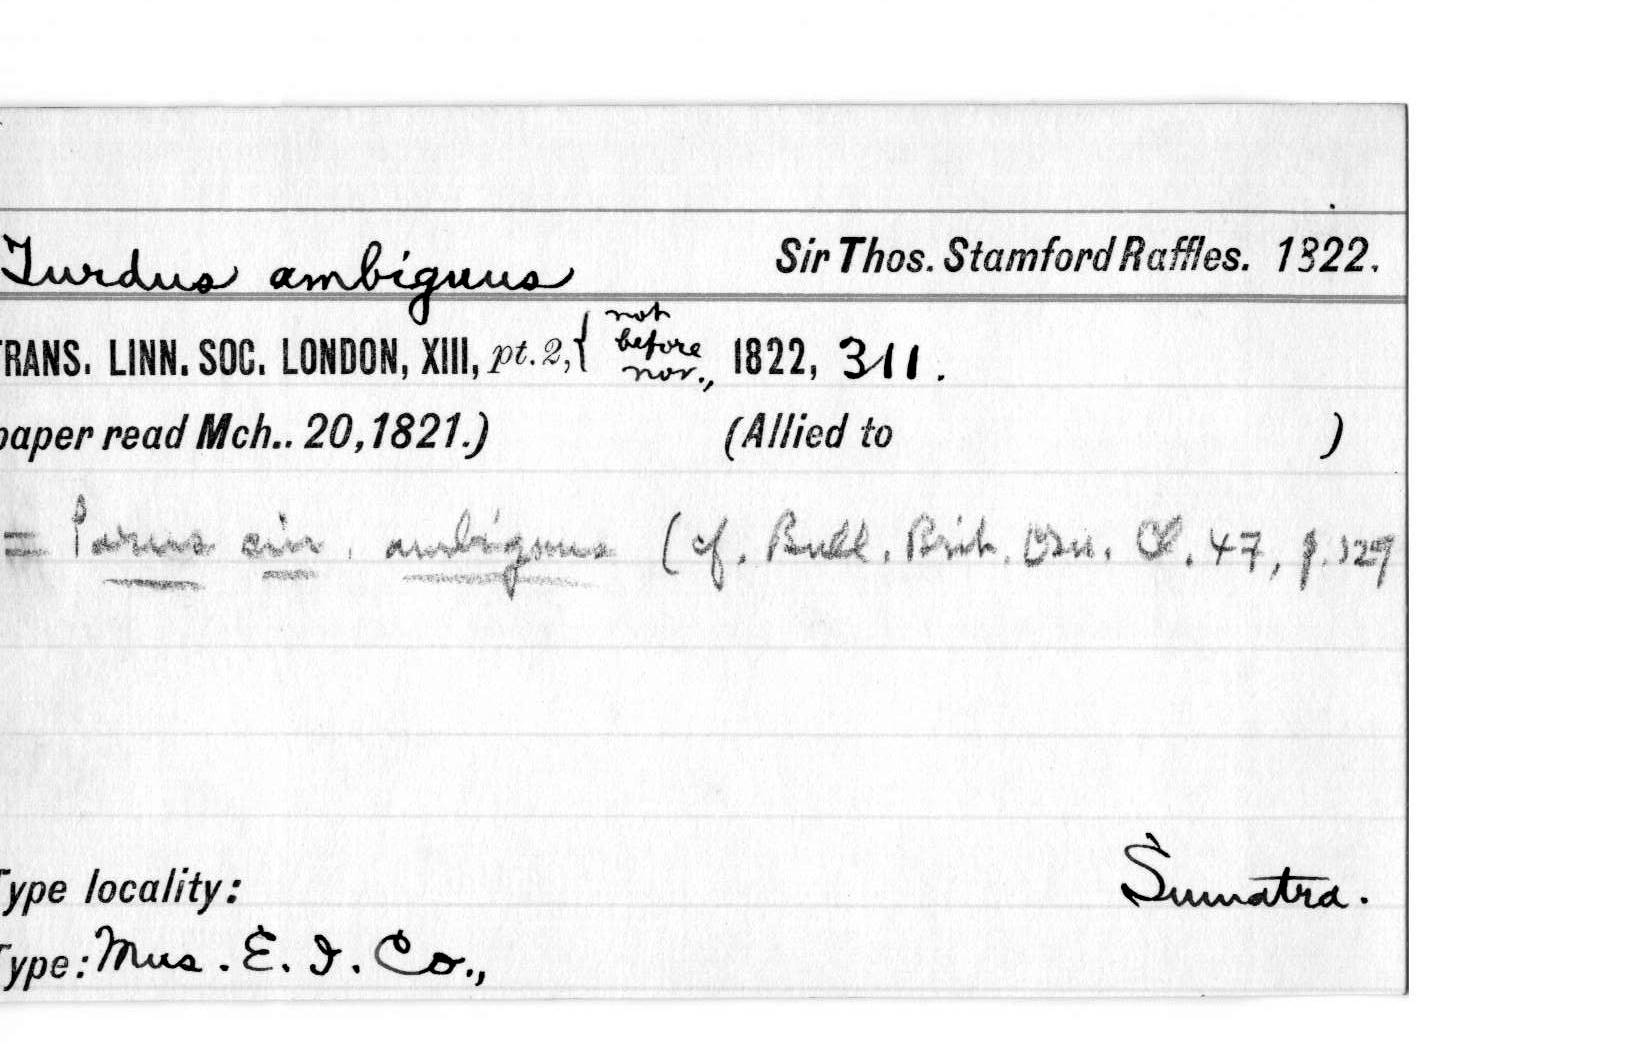 Turdus ambiguus Sir Thos. Stamford Raffles. 1822.
TRANS. LINN. SOC. LONDON, XIII, pt. 2, { not before nov., 1822, 311.
paper read Mch.. 20, 1821.) (Allied to )
= Parus cin. ambiguus (cf. Bull. Brit. Orn. Cl. 47, p. 129
Type locality: Sumatra.
Type: Mus. E. I. Co.,